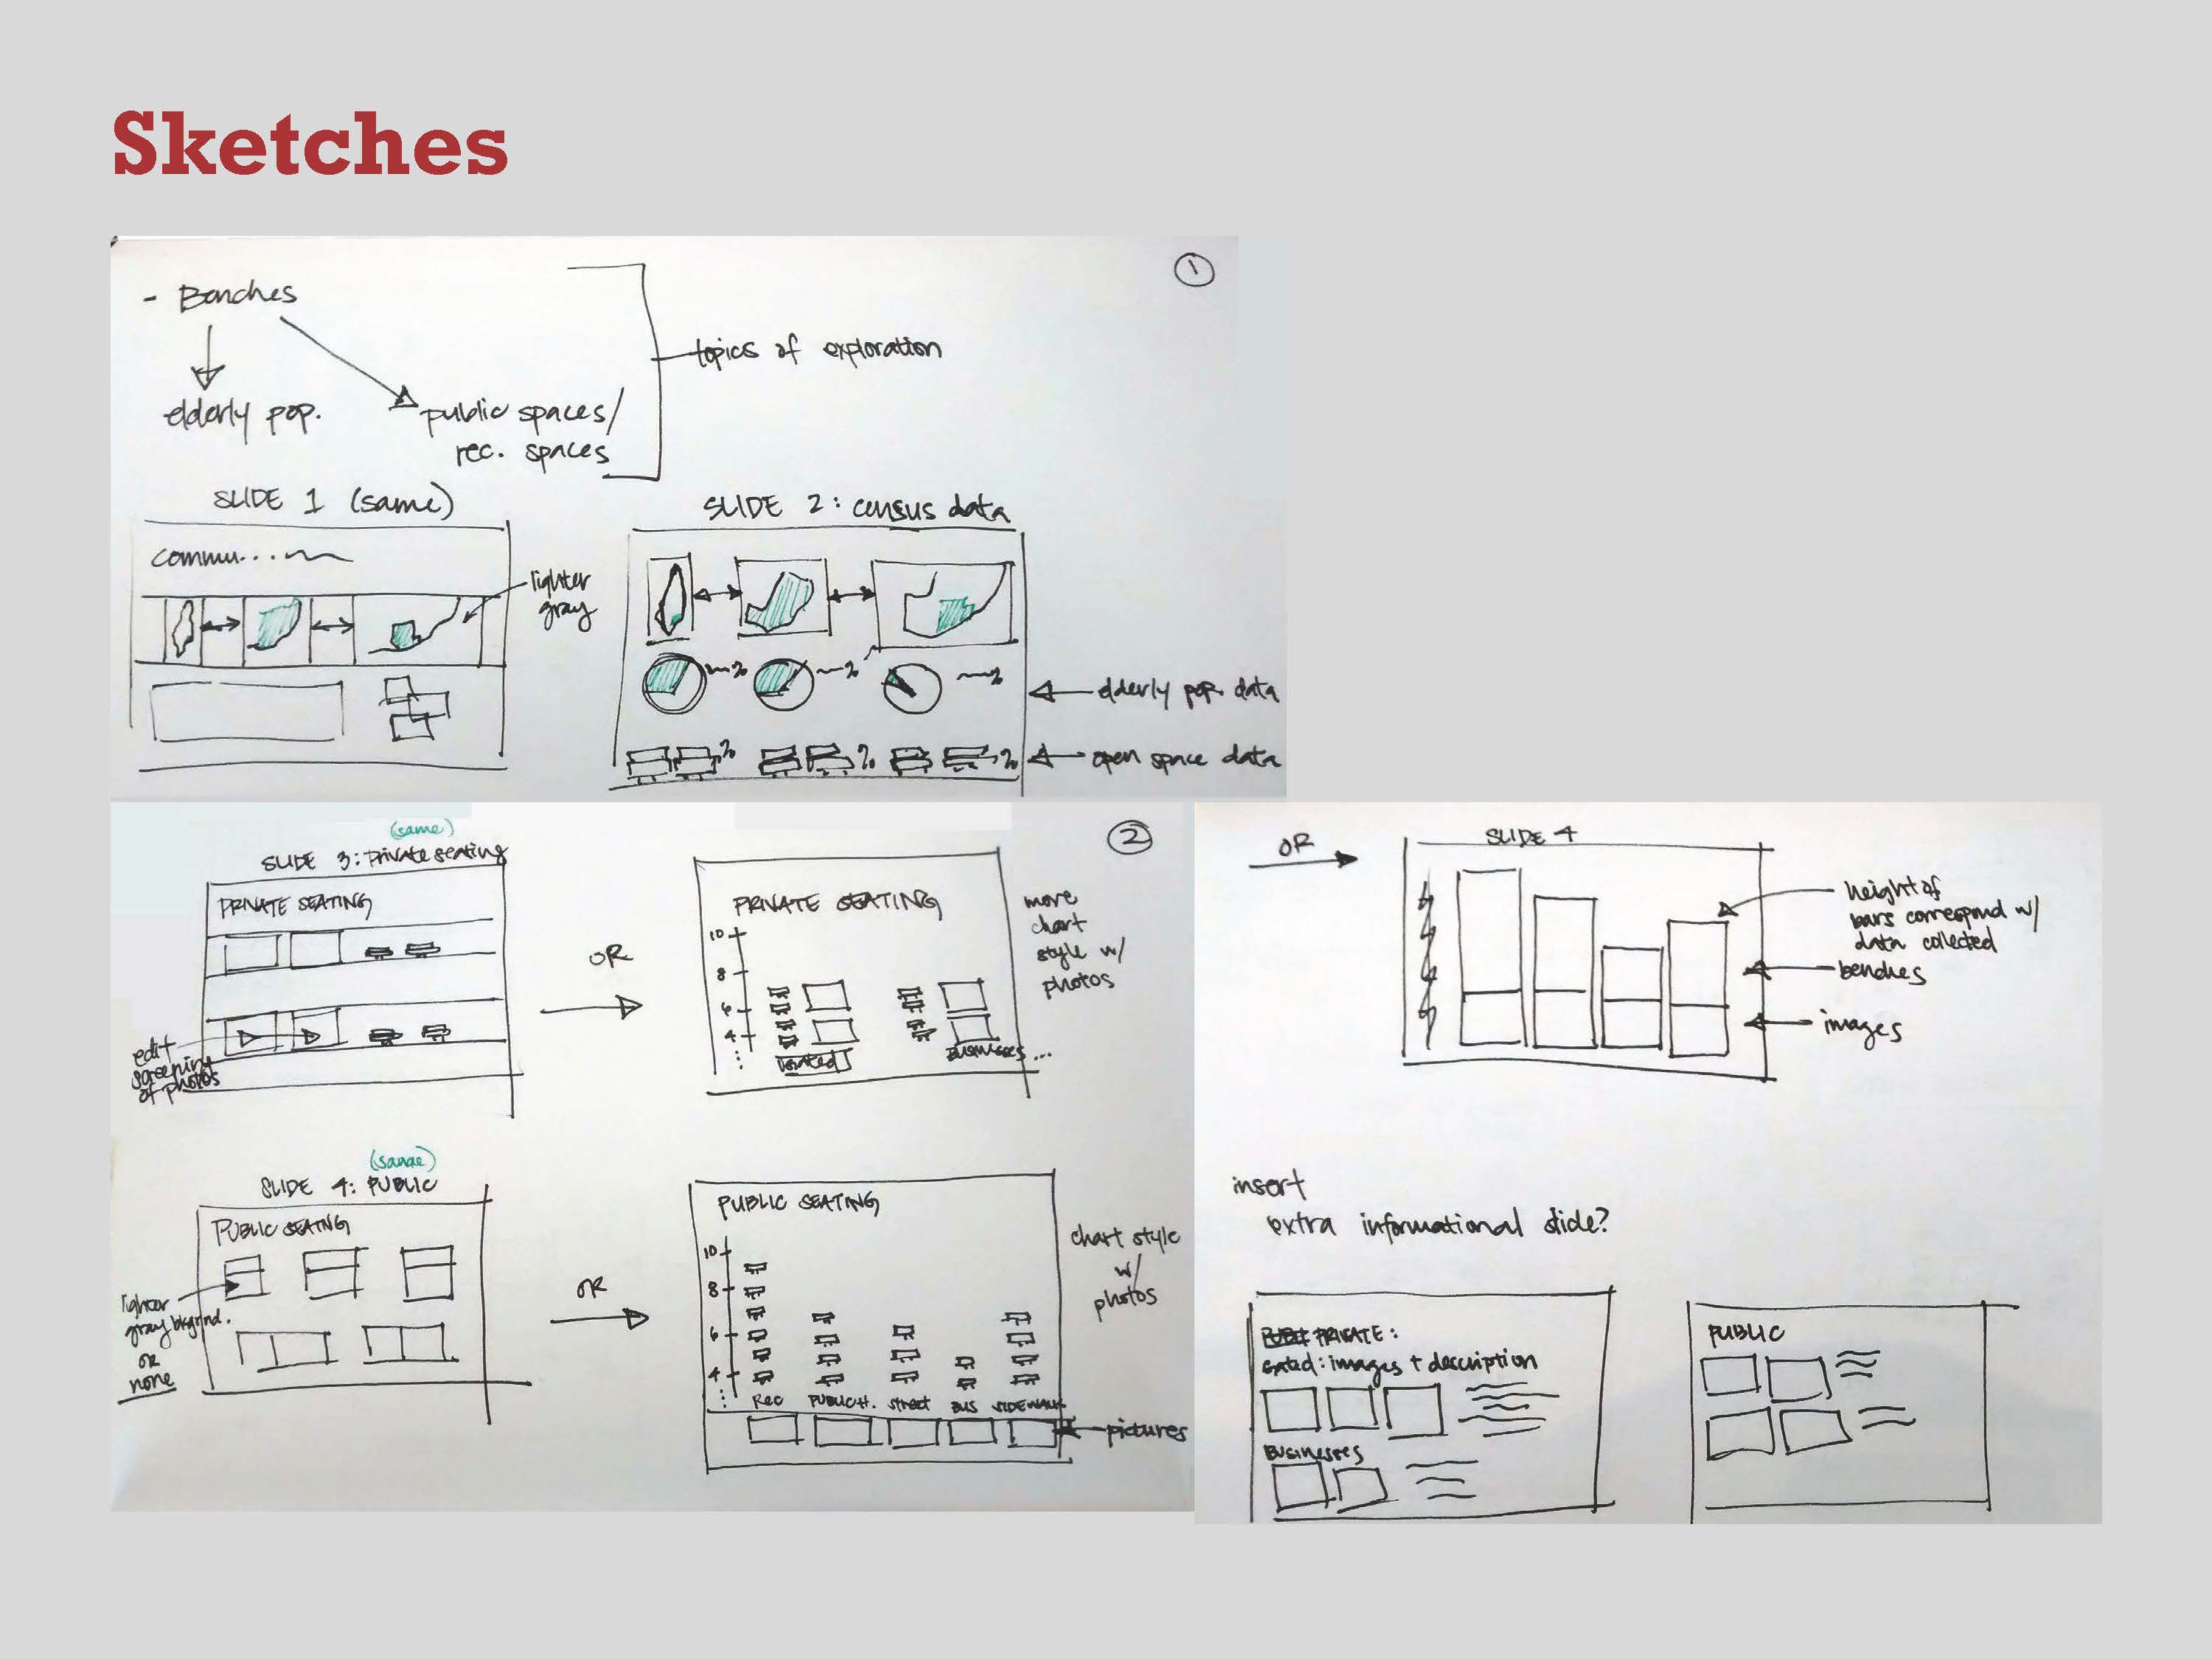 Sketches
①
- Benches
elderly pop.
public spaces/
rec. spaces
topics of exploration
SLIDE 1 (same)
commu...
lighter
gray
SLIDE 2: census data
%
%
%
elderly pop. data
% % %
open space data
②
(same)
SLIDE 3: Private seating
PRIVATE SEATING
edit
screening
of photos
OR
PRIVATE SEATING
10
8
6
4
Gated
BUSINESSES ...
more
chart
style w/
photos
(same)
SLIDE 4: PUBLIC
PUBLIC SEATING
lighter
gray bkgrnd.
OR
none
OR
PUBLIC SEATING
10
8
6
4
Rec PUBLIC H. street BUS SIDEWALK
pictures
chart style
w/
photos
OR
SLIDE 4
height of
bars correspond w/
data collected
benches
images
insert
extra informational slide?
PRIVATE:
Gated: images + description
BUSINESSES
PUBLIC